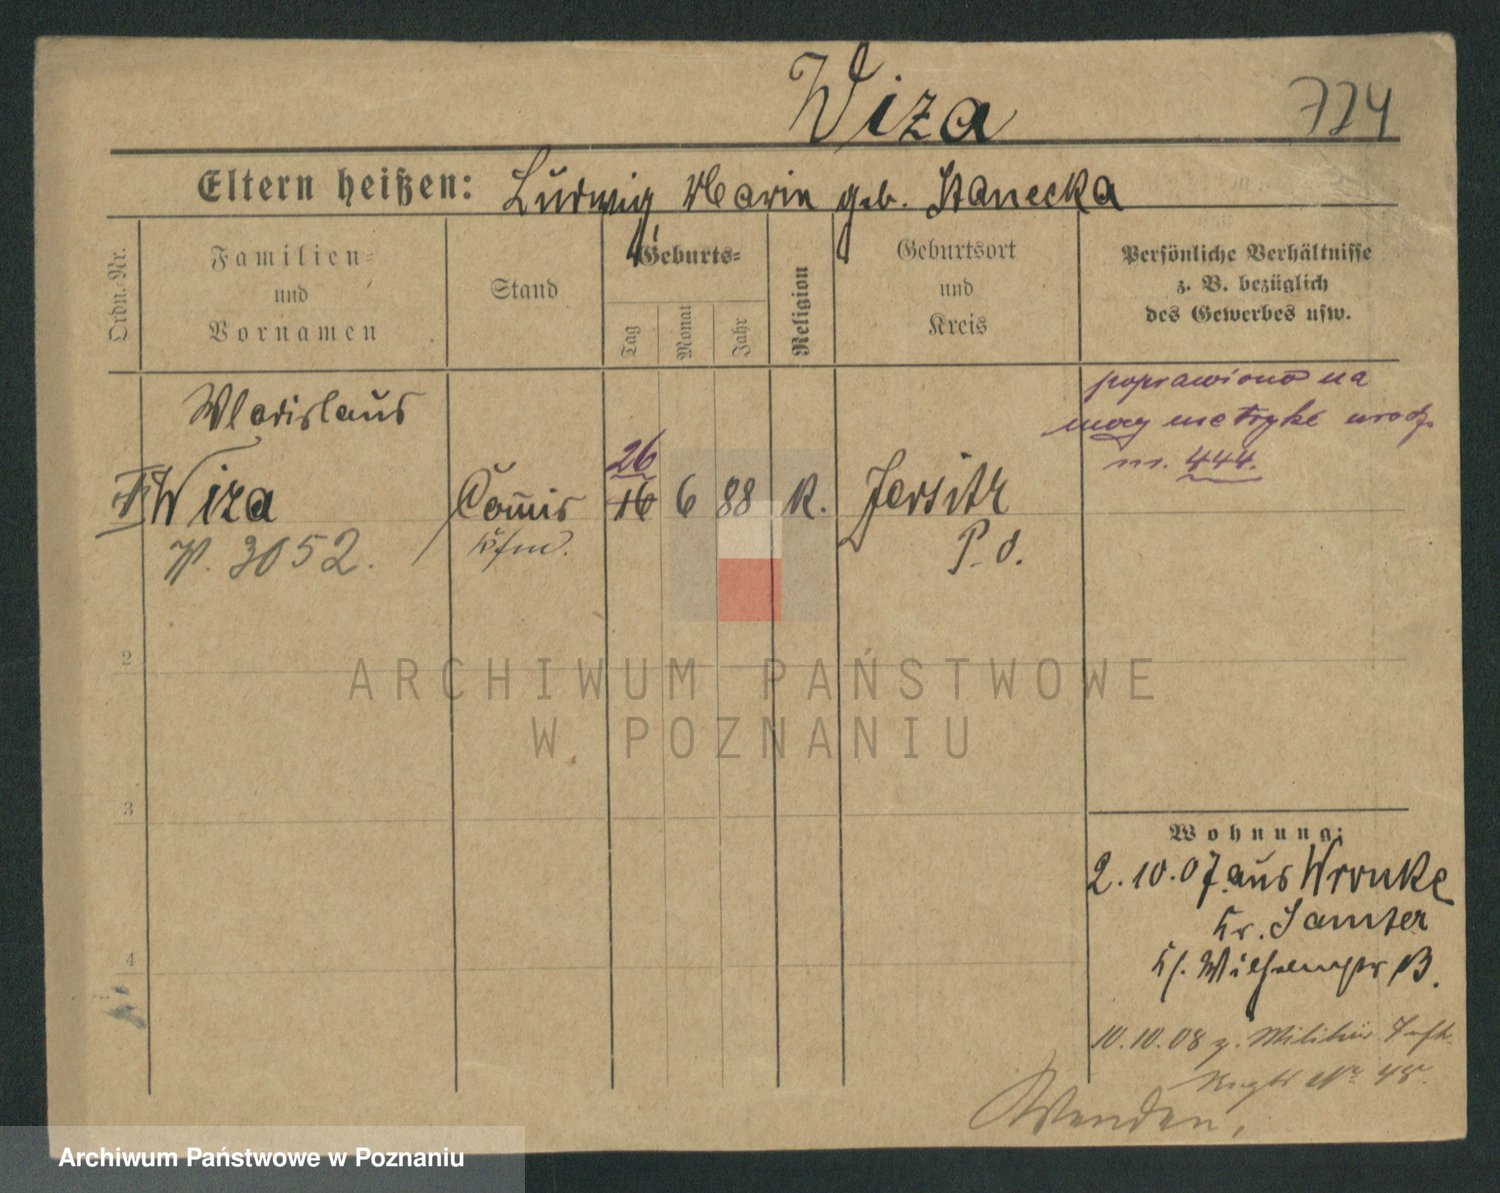 Wiza 724
Eltern heißen: Ludwig Marie geb. Stanecka
Ordn.-Nr.
Familien-
und
Vornamen
Stand
Geburts-
Tag
Monat
Jahr
Religion
Geburtsort
und
Kreis
Persönliche Verhältnisse
z. B. bezüglich
des Gewerbes usw.
poprawiono na
mocy metryki urodz.
nr. 444.
Wladislaus
Wiza
Commis
Kfm.
26
16 6 88 K.
Jersitz
P. O.
P. 3052.
2
3
4
Wohnung:
2.10.07 aus Wronke
Kr. Samter
10.10.08 z. Militär Inft.
Regt. Nr 48.
Wenden.
ARCHIWUM PAŃSTWOWE
W POZNANIU
Archiwum Państwowe w Poznaniu